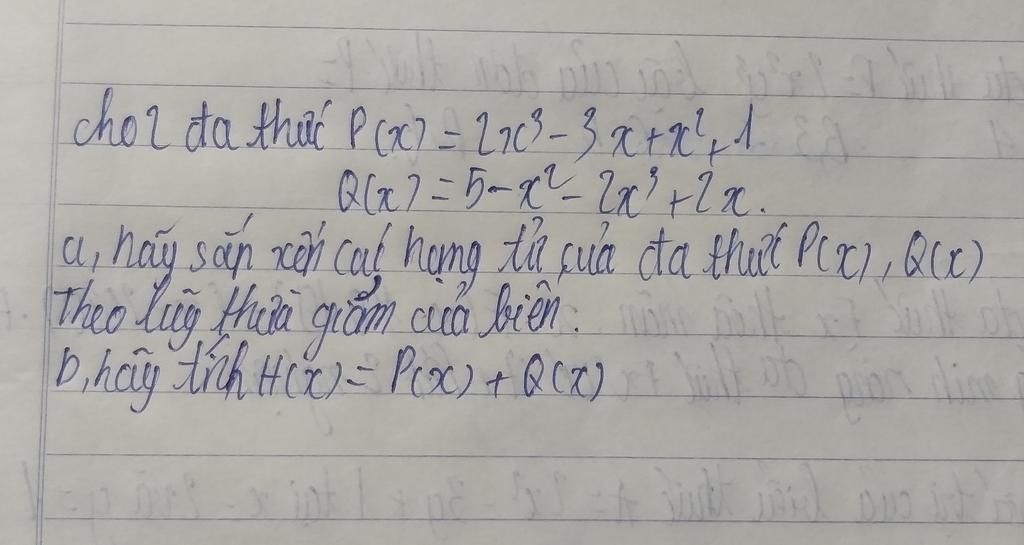 cho 2 đa thức P(x) = 2x³ - 3x + x² + 1
Q(x) = 5 - x² - 2x³ + 2x.
a, hãy sắp xếp các hạng tử của đa thức P(x), Q(x)
Theo lũy thừa giảm của biến.
b, hãy tính H(x) = P(x) + Q(x)